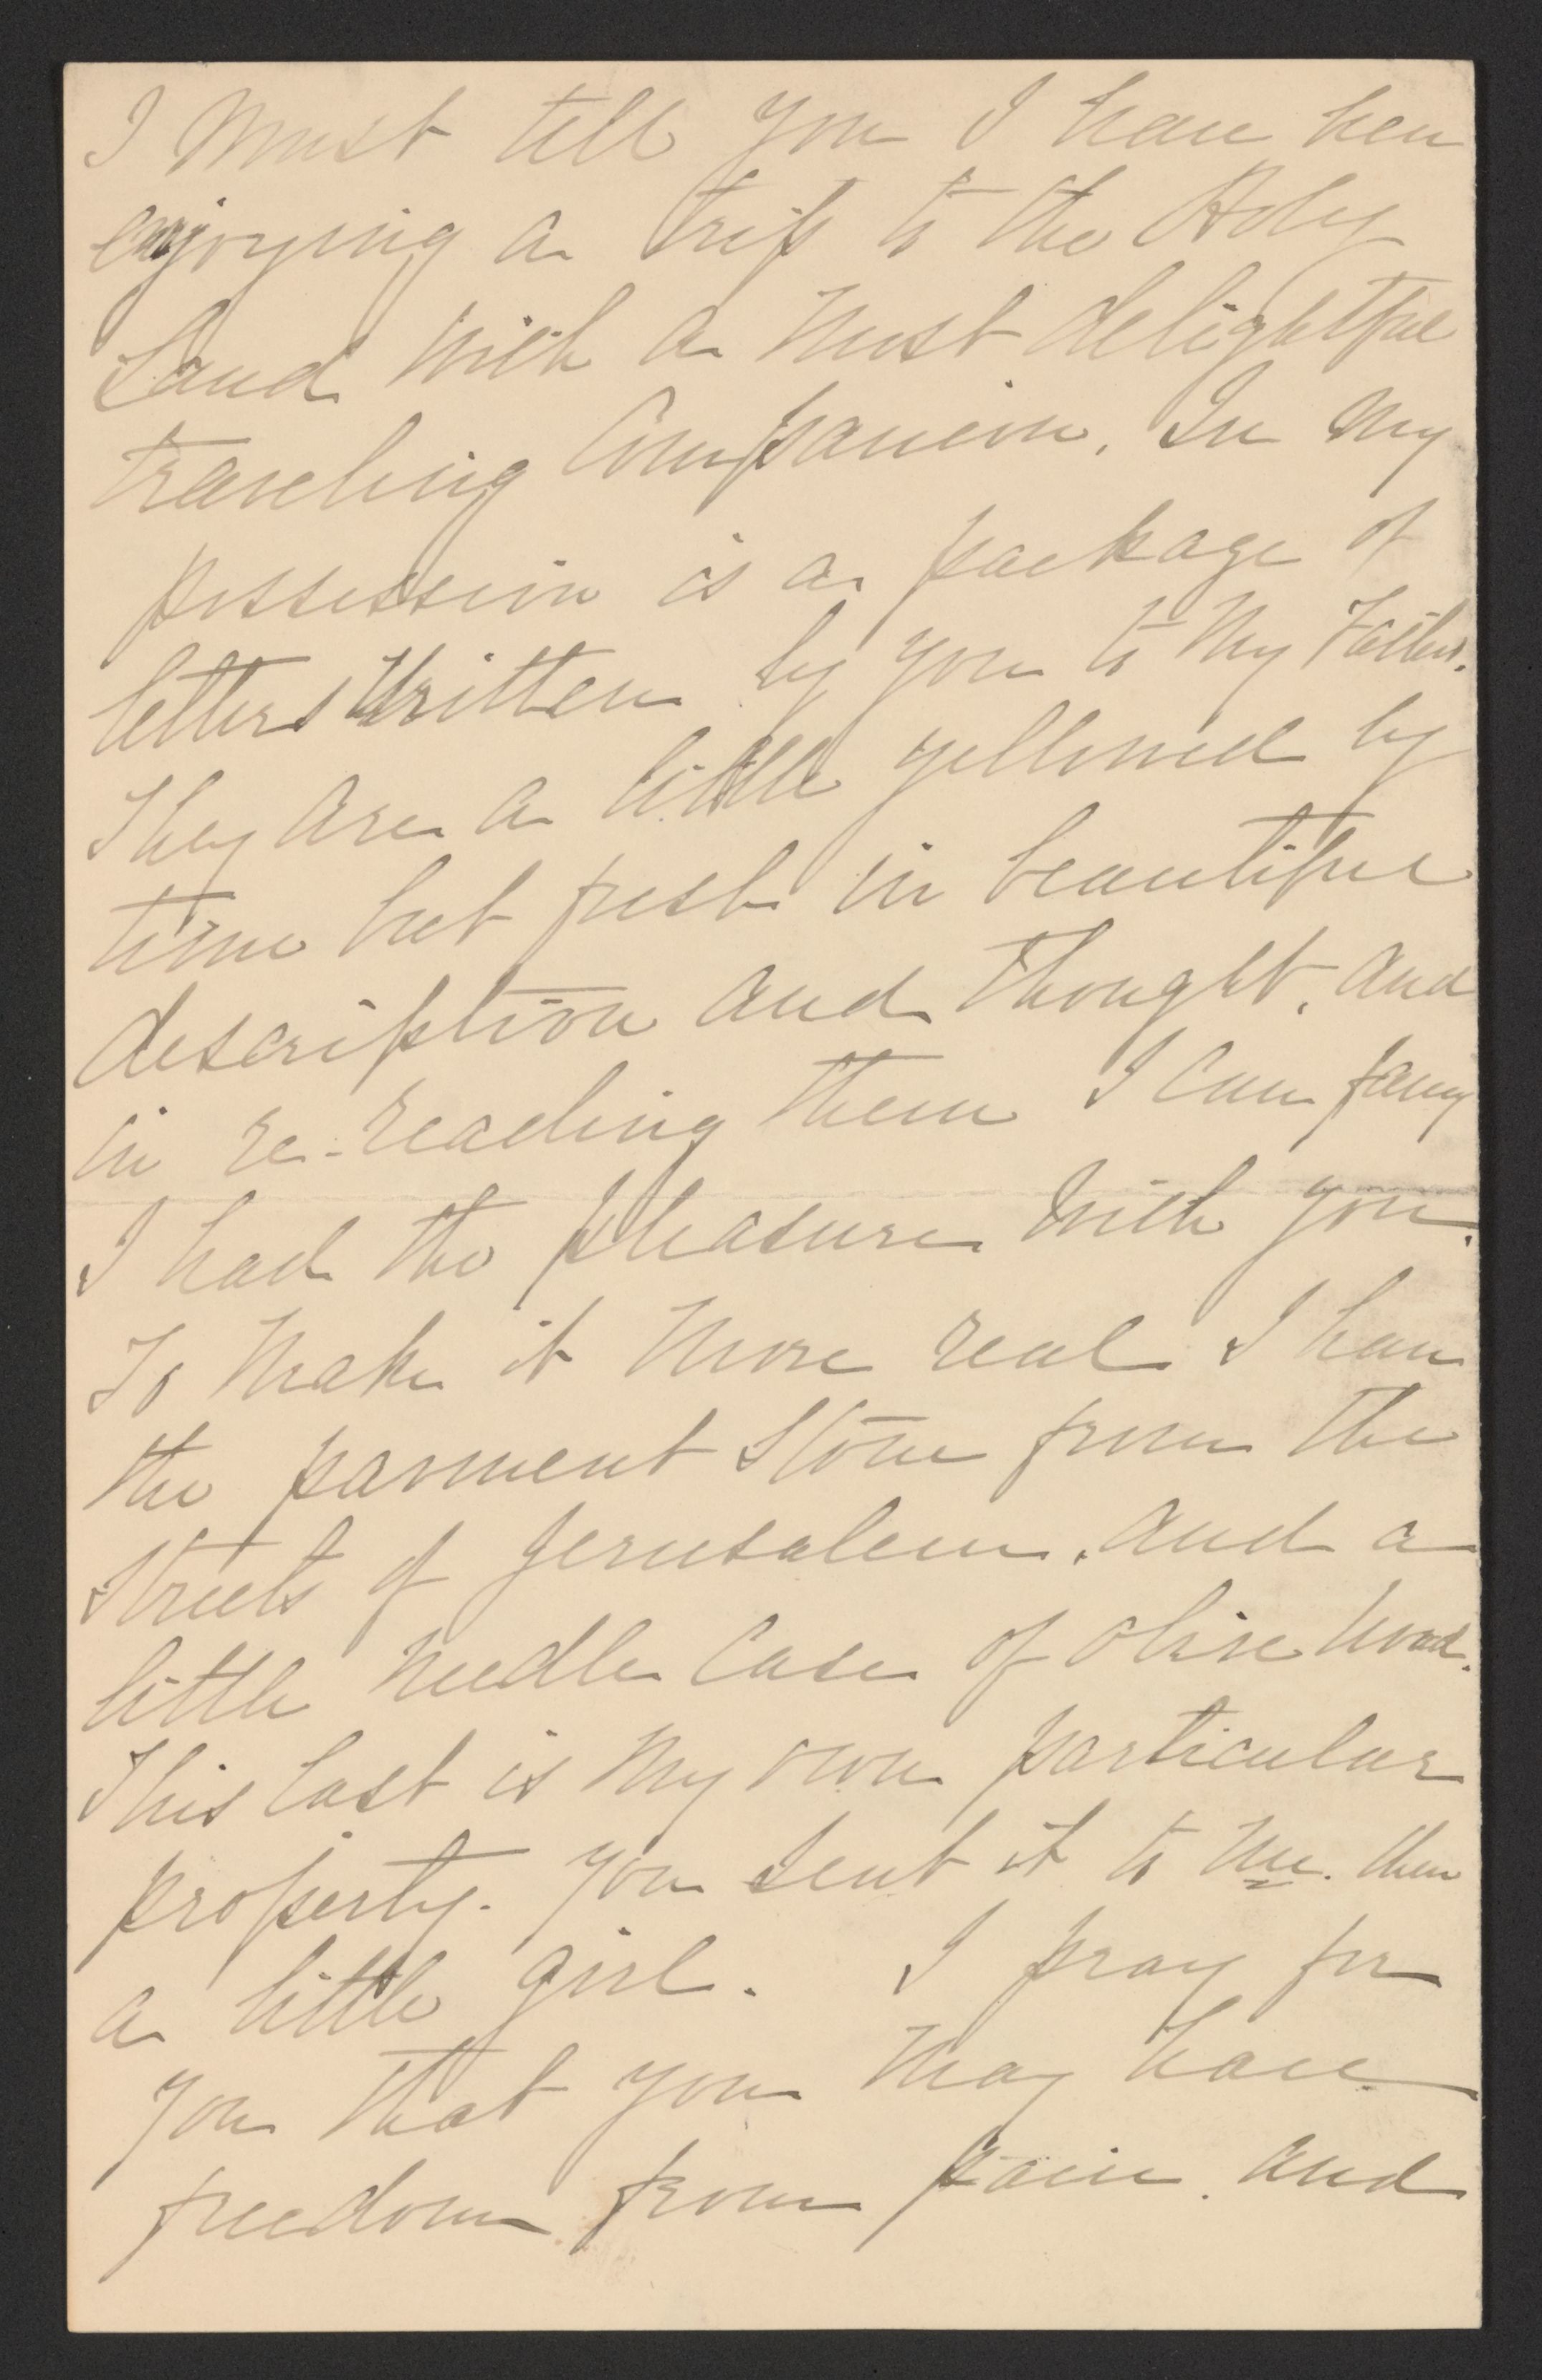 I must tell you I have been
enjoying a trip to the Holy
Land with a most delightful
traveling companion. In my
possession is a package of
letters written by you to my Father.
They are a little yellowed by
time but fresh in beautiful
description and thought. and
in re-reading them I can fancy
I had the pleasure with you.
To make it more real I have
the pavment stone from the
streets of Jerusalem. and a
little needle case of olive wood.
This last is my own particular
property. You sent it to me. then
a little girl. I pray for
you that you may have
freedom from pain. and